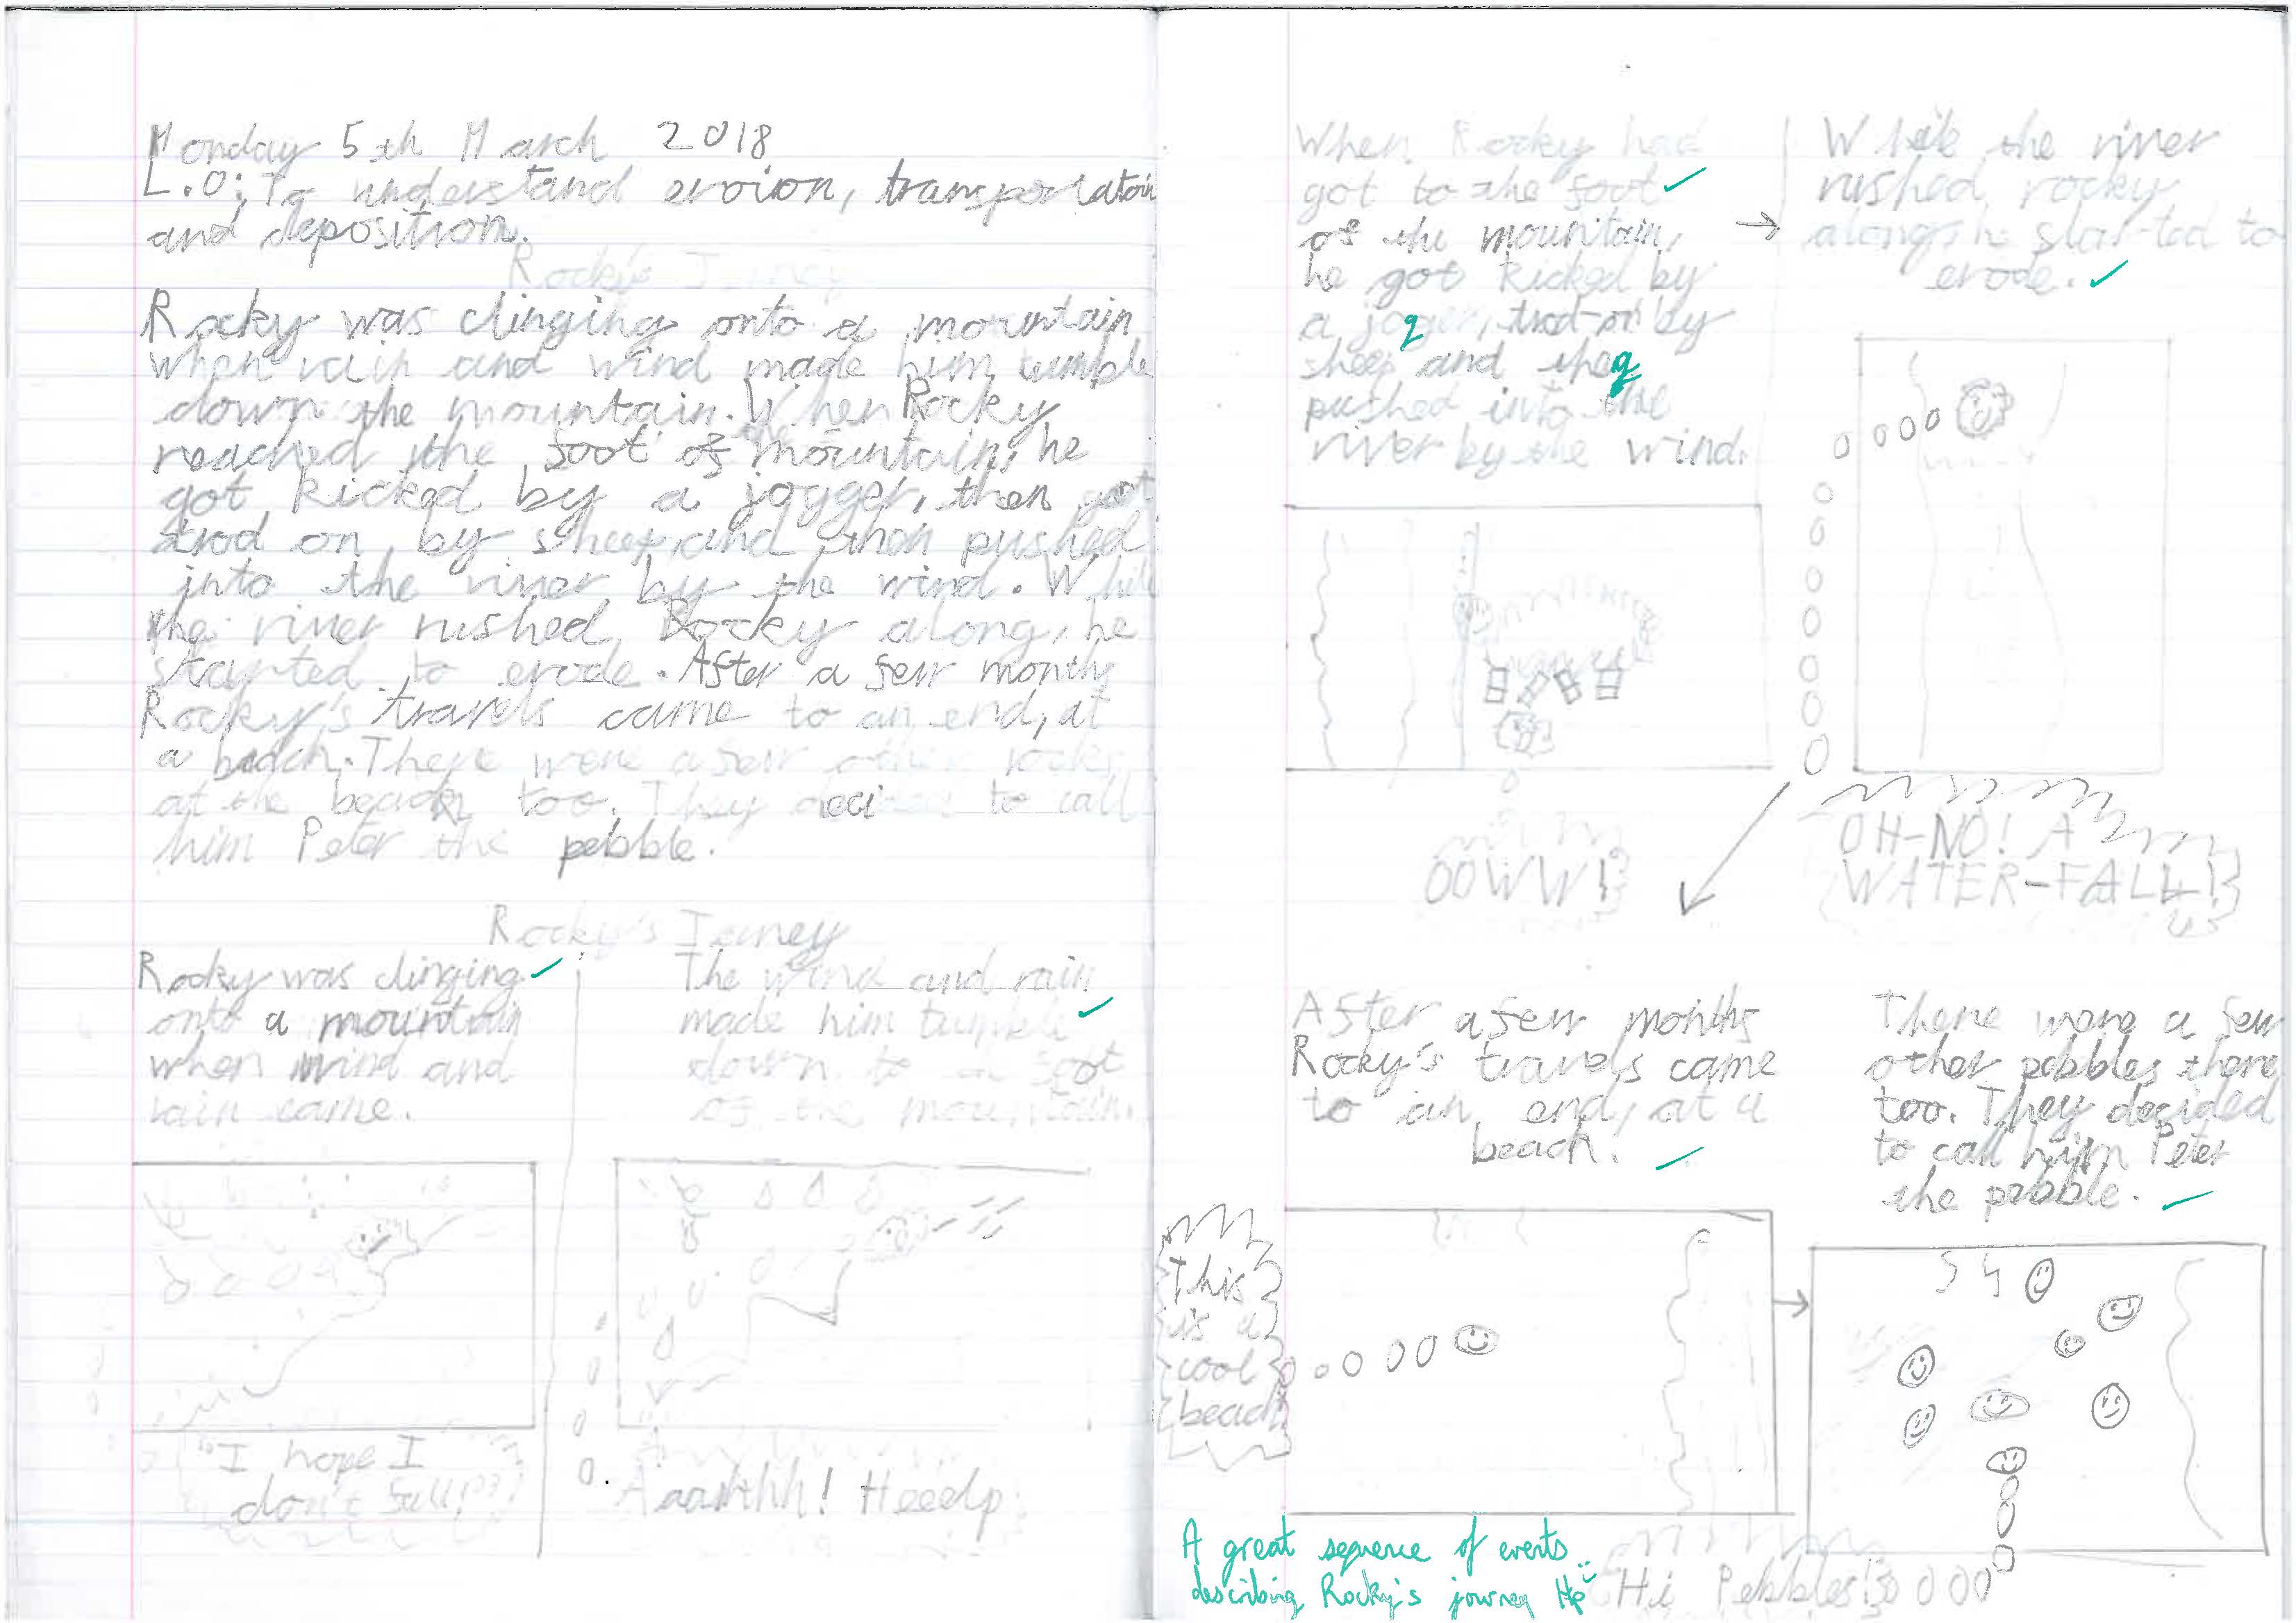 Monday 5th March 2018
L.O: To understand eroion, transportatoin
and deposition.
Rocky's
Rocky was clinging onto a mountain
when rain and wind made him tumble
down the mountain. When Rocky
reached the foot of the mountain, he
got kicked by a jogger, then got
trod on by sheep and then pushed
into the river by the wind. While
the river rushed Rocky along, he
started to erode. After a few months
Rocky's travels came to an end, at
a beach. There were a few other rocks
at the beach too. They decided to call
him Peter the pebble.
Rocky's Jorney
Rocky was clinging
onto a mountain
when wind and
rain came.
The wind and rain
made him tumble
down to foot
of the mountain.
I hope I
don't fall!
Aaarhhh! Heeelp
When Rocky had
got to the foot
of the mountain,
he got kicked by
a jogger, trod on by
sheep and then
pushed into the
river by the wind.
OOWW!
While the river
rushed rocky
along he started to
erode.
OH-NO! A
WATER-FALL!
After a few months
Rocky's travels came
to an end, at a
beach.
This
is a
cool
beach
There were a few
other pebbles there
too. They decided
to call him Peter
the pebble.
Hi Pebbles!
A great sequence of events
describing Rocky's journey